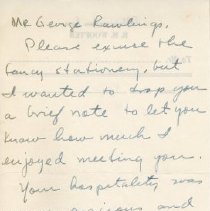 Mr George Rawlings.
Please excuse the
fancy stationery, but
I wanted to drop you
a brief note to let you
know how much I
enjoyed meeting you.
Your hospitality was
gracious and